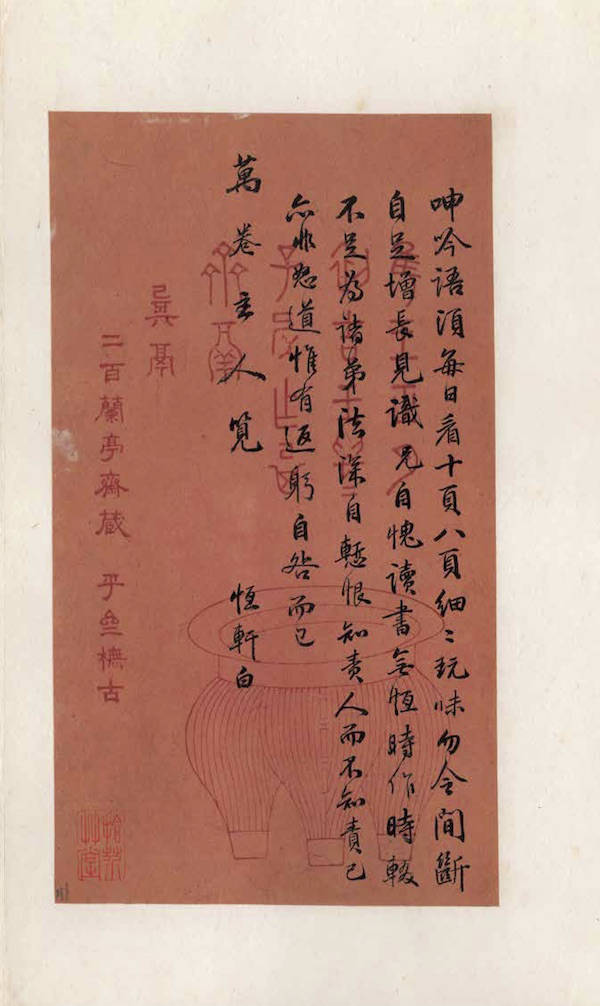 呻吟語須每日看十頁八頁細〻玩味勿令間斷
自足增長見識兄自愧讀書無恆時作時輟
不足為諸弟法深自慙恨知責人而不知責己
亦非恕道惟有返躬自咎而已
萬卷主人覽
恆軒白
㠱鬲
二百蘭亭齋藏 平叁橅古